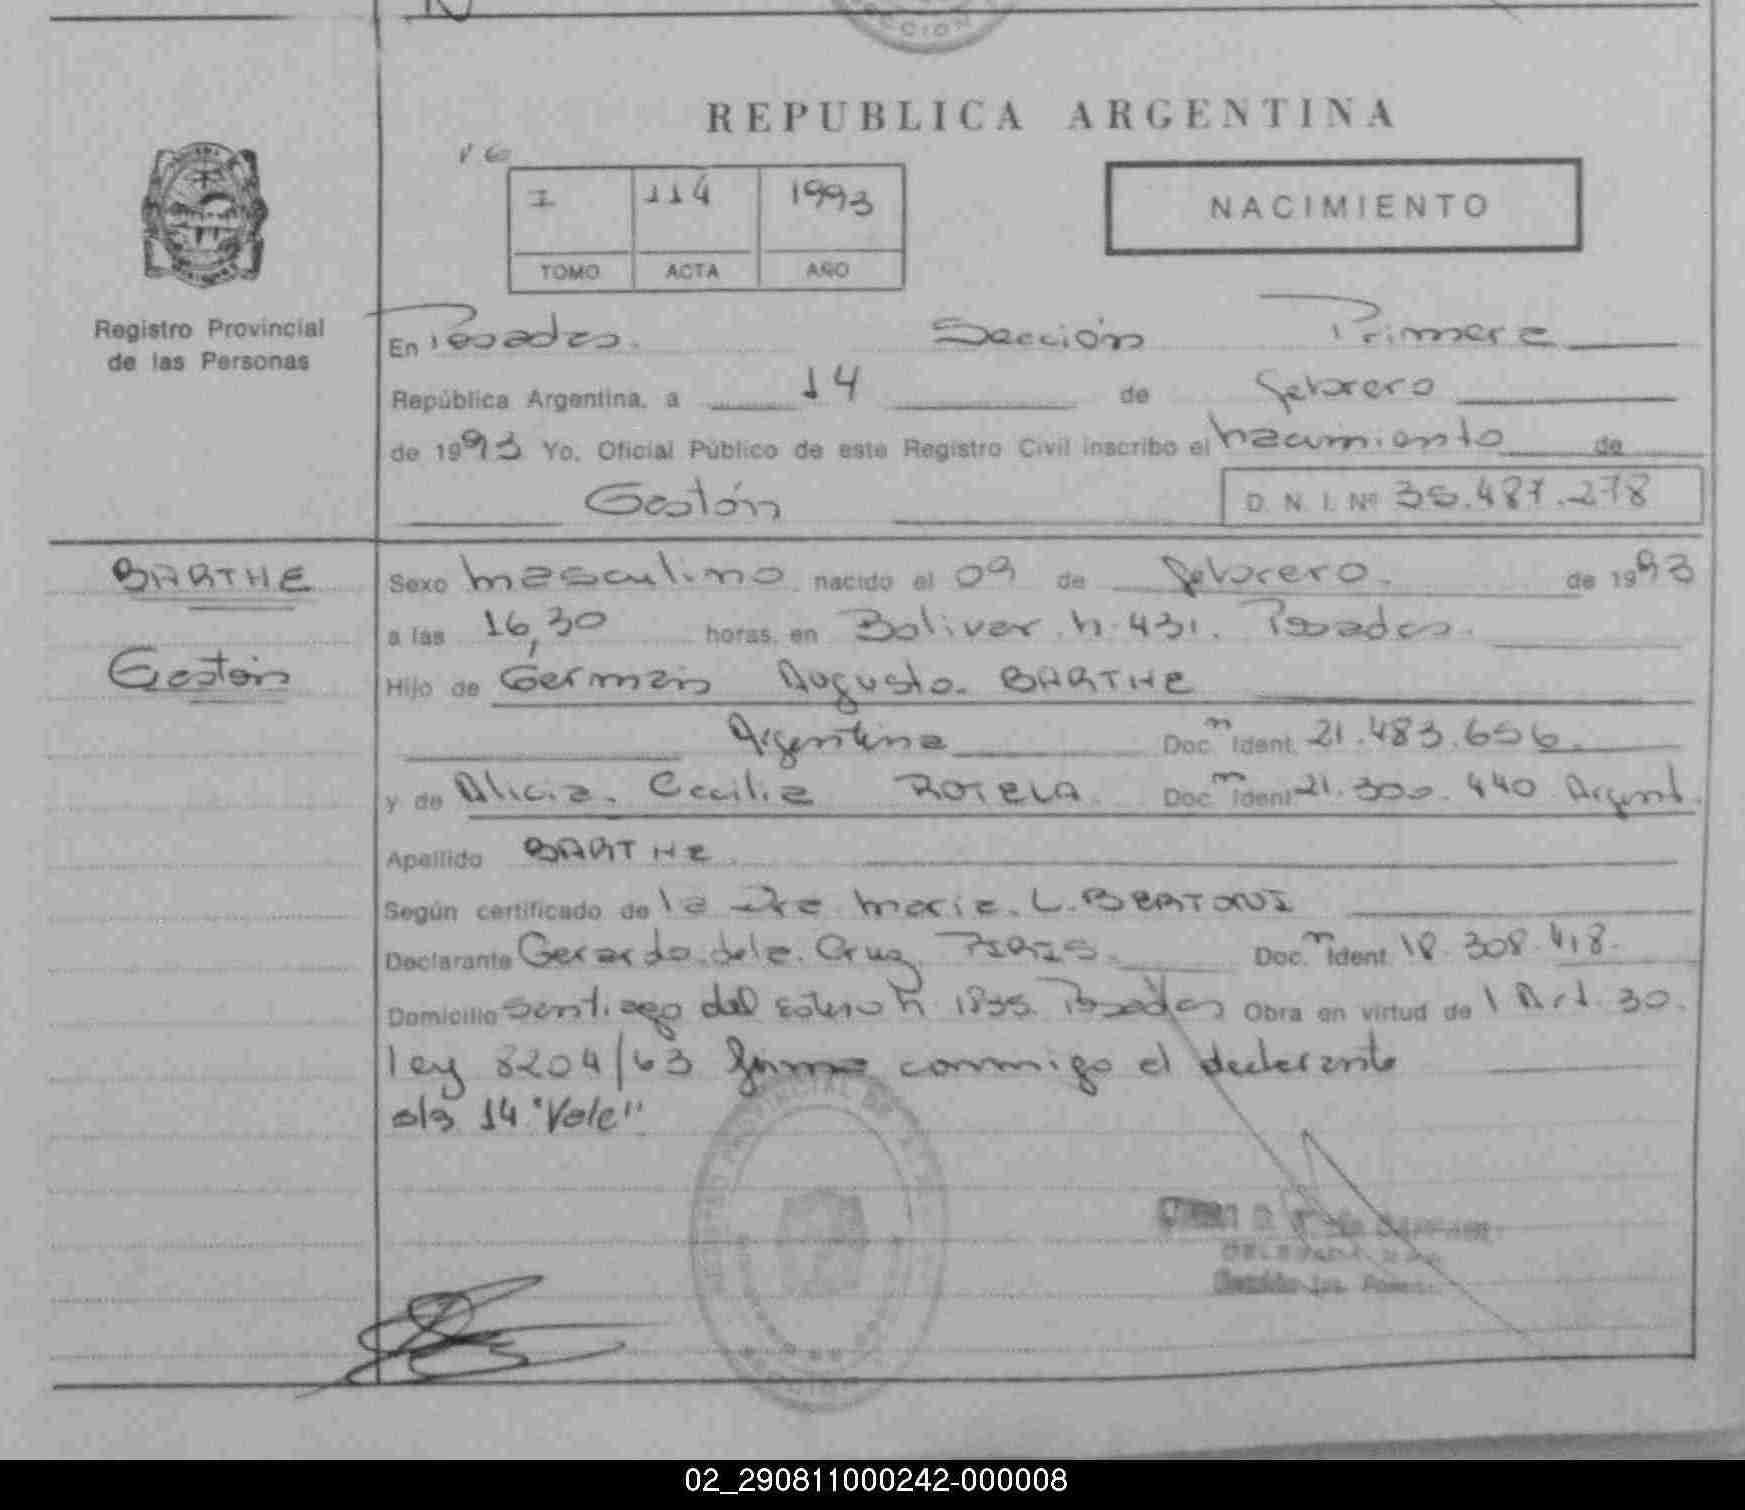 REPUBLICA ARGENTINA
I 114 1993
TOMO ACTA AÑO
NACIMIENTO
Registro Provincial
de las Personas
En Posadas. Sección Primera
República Argentina, a 14 de febrero
de 1993 Yo, Oficial Público de este Registro Civil inscribo el nacimiento de
Gastón D. N. I. Nº 35.487.278
BARTHE
Gastón
Sexo masculino nacido el 09 de febrero. de 1993
a las 16,30 horas, en Bolivar n. 431. Posadas.
Hijo de Germán Augusto. BARTHE
Argentina Doc. Ident. 21.483.656.
y de Alicia. Cecilia ROTELA. Doc. Ident 21.300.440 Argent.
Apellido BARTHE
Según certificado de la Dra Maria. L. BERTONI
Declarante Gerardo dela. Cruz PIRIS. Doc. Ident. 18.308.418.
Domicilio Santiago del Estero n. 1835. Posadas Obra en virtud de l Art. 30.
ley 8204/63 firma conmigo el declarante
s/r 14 "Vale"
02_290811000242-000008